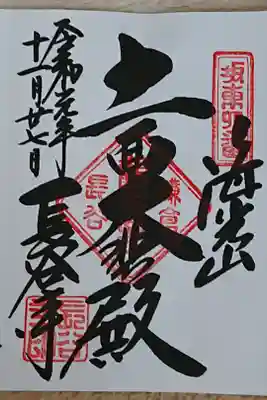 坂東四番
海光山
十一面大悲殿
鎌倉
長谷
令和元年
十一月廿七日
長谷寺